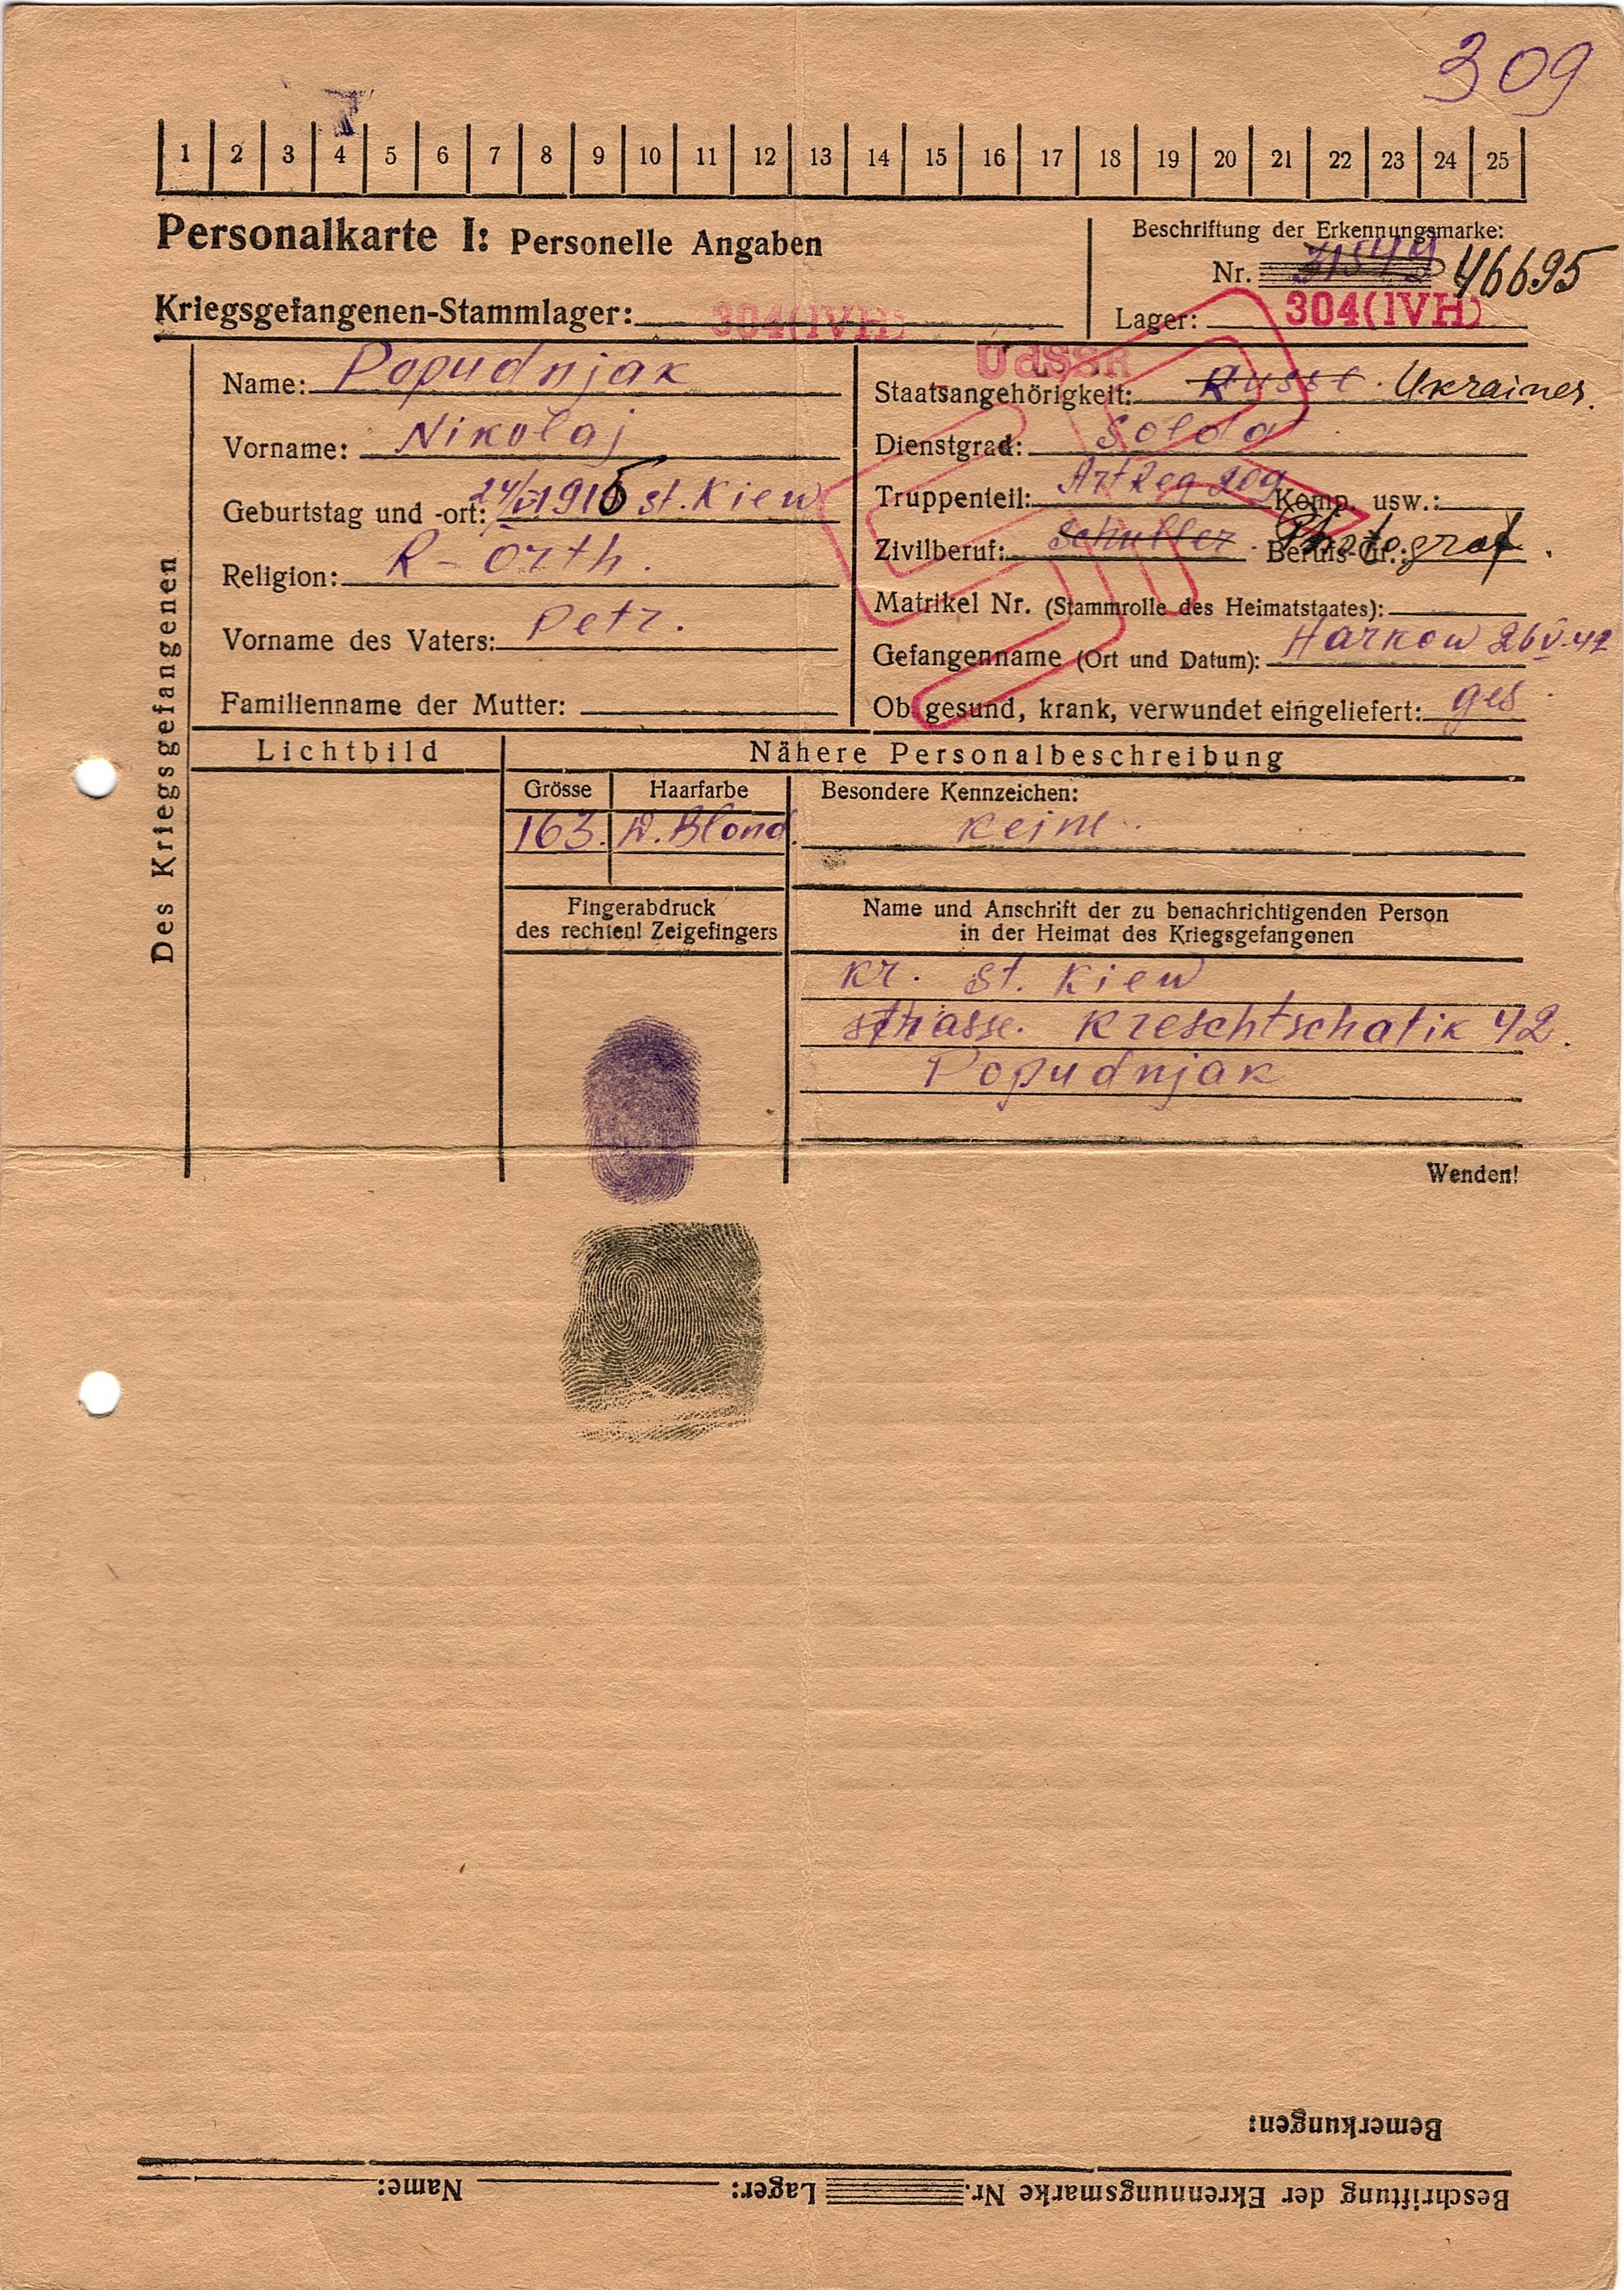 309
1 2 3 4 5 6 7 8 9 10 11 12 13 14 15 16 17 18 19 20 21 22 23 24 25
Personalkarte I: Personelle Angaben
Beschriftung der Erkennungsmarke:
Nr. 46695
Kriegsgefangenen-Stammlager: 304(IVH)
Lager: 304(IVH)
Des Kriegsgefangenen
Name: Popudnjak
Vorname: Nikolaj
Geburtstag und -ort: st. Kiew
Religion: R-Orth.
Vorname des Vaters: Petr.
Familienname der Mutter:
UdSSR
Staatsangehörigkeit: Russe. Ukrainer.
Dienstgrad: Soldat
Truppenteil: Art Reg 209 Komp. usw.:
Zivilberuf: Schuller. Berufs-Gr.: Photograf.
Matrikel Nr. (Stammrolle des Heimatstaates):
Gefangenname (Ort und Datum): Harkow 26 V. 42
Ob gesund, krank, verwundet eingeliefert: ges.
Lichtbild
Nähere Personalbeschreibung
Grösse Haarfarbe Besondere Kennzeichen:
163. D. Blond. keine.
Fingerabdruck
des rechten! Zeigefingers
Name und Anschrift der zu benachrichtigenden Person
in der Heimat des Kriegsgefangenen
kr. st. Kiew
strasse. Kreschtschatik 42.
Popudnjak
Wenden!
Bemerkungen:
Beschriftung der Ekrennungsmarke Nr. Lager: Name: